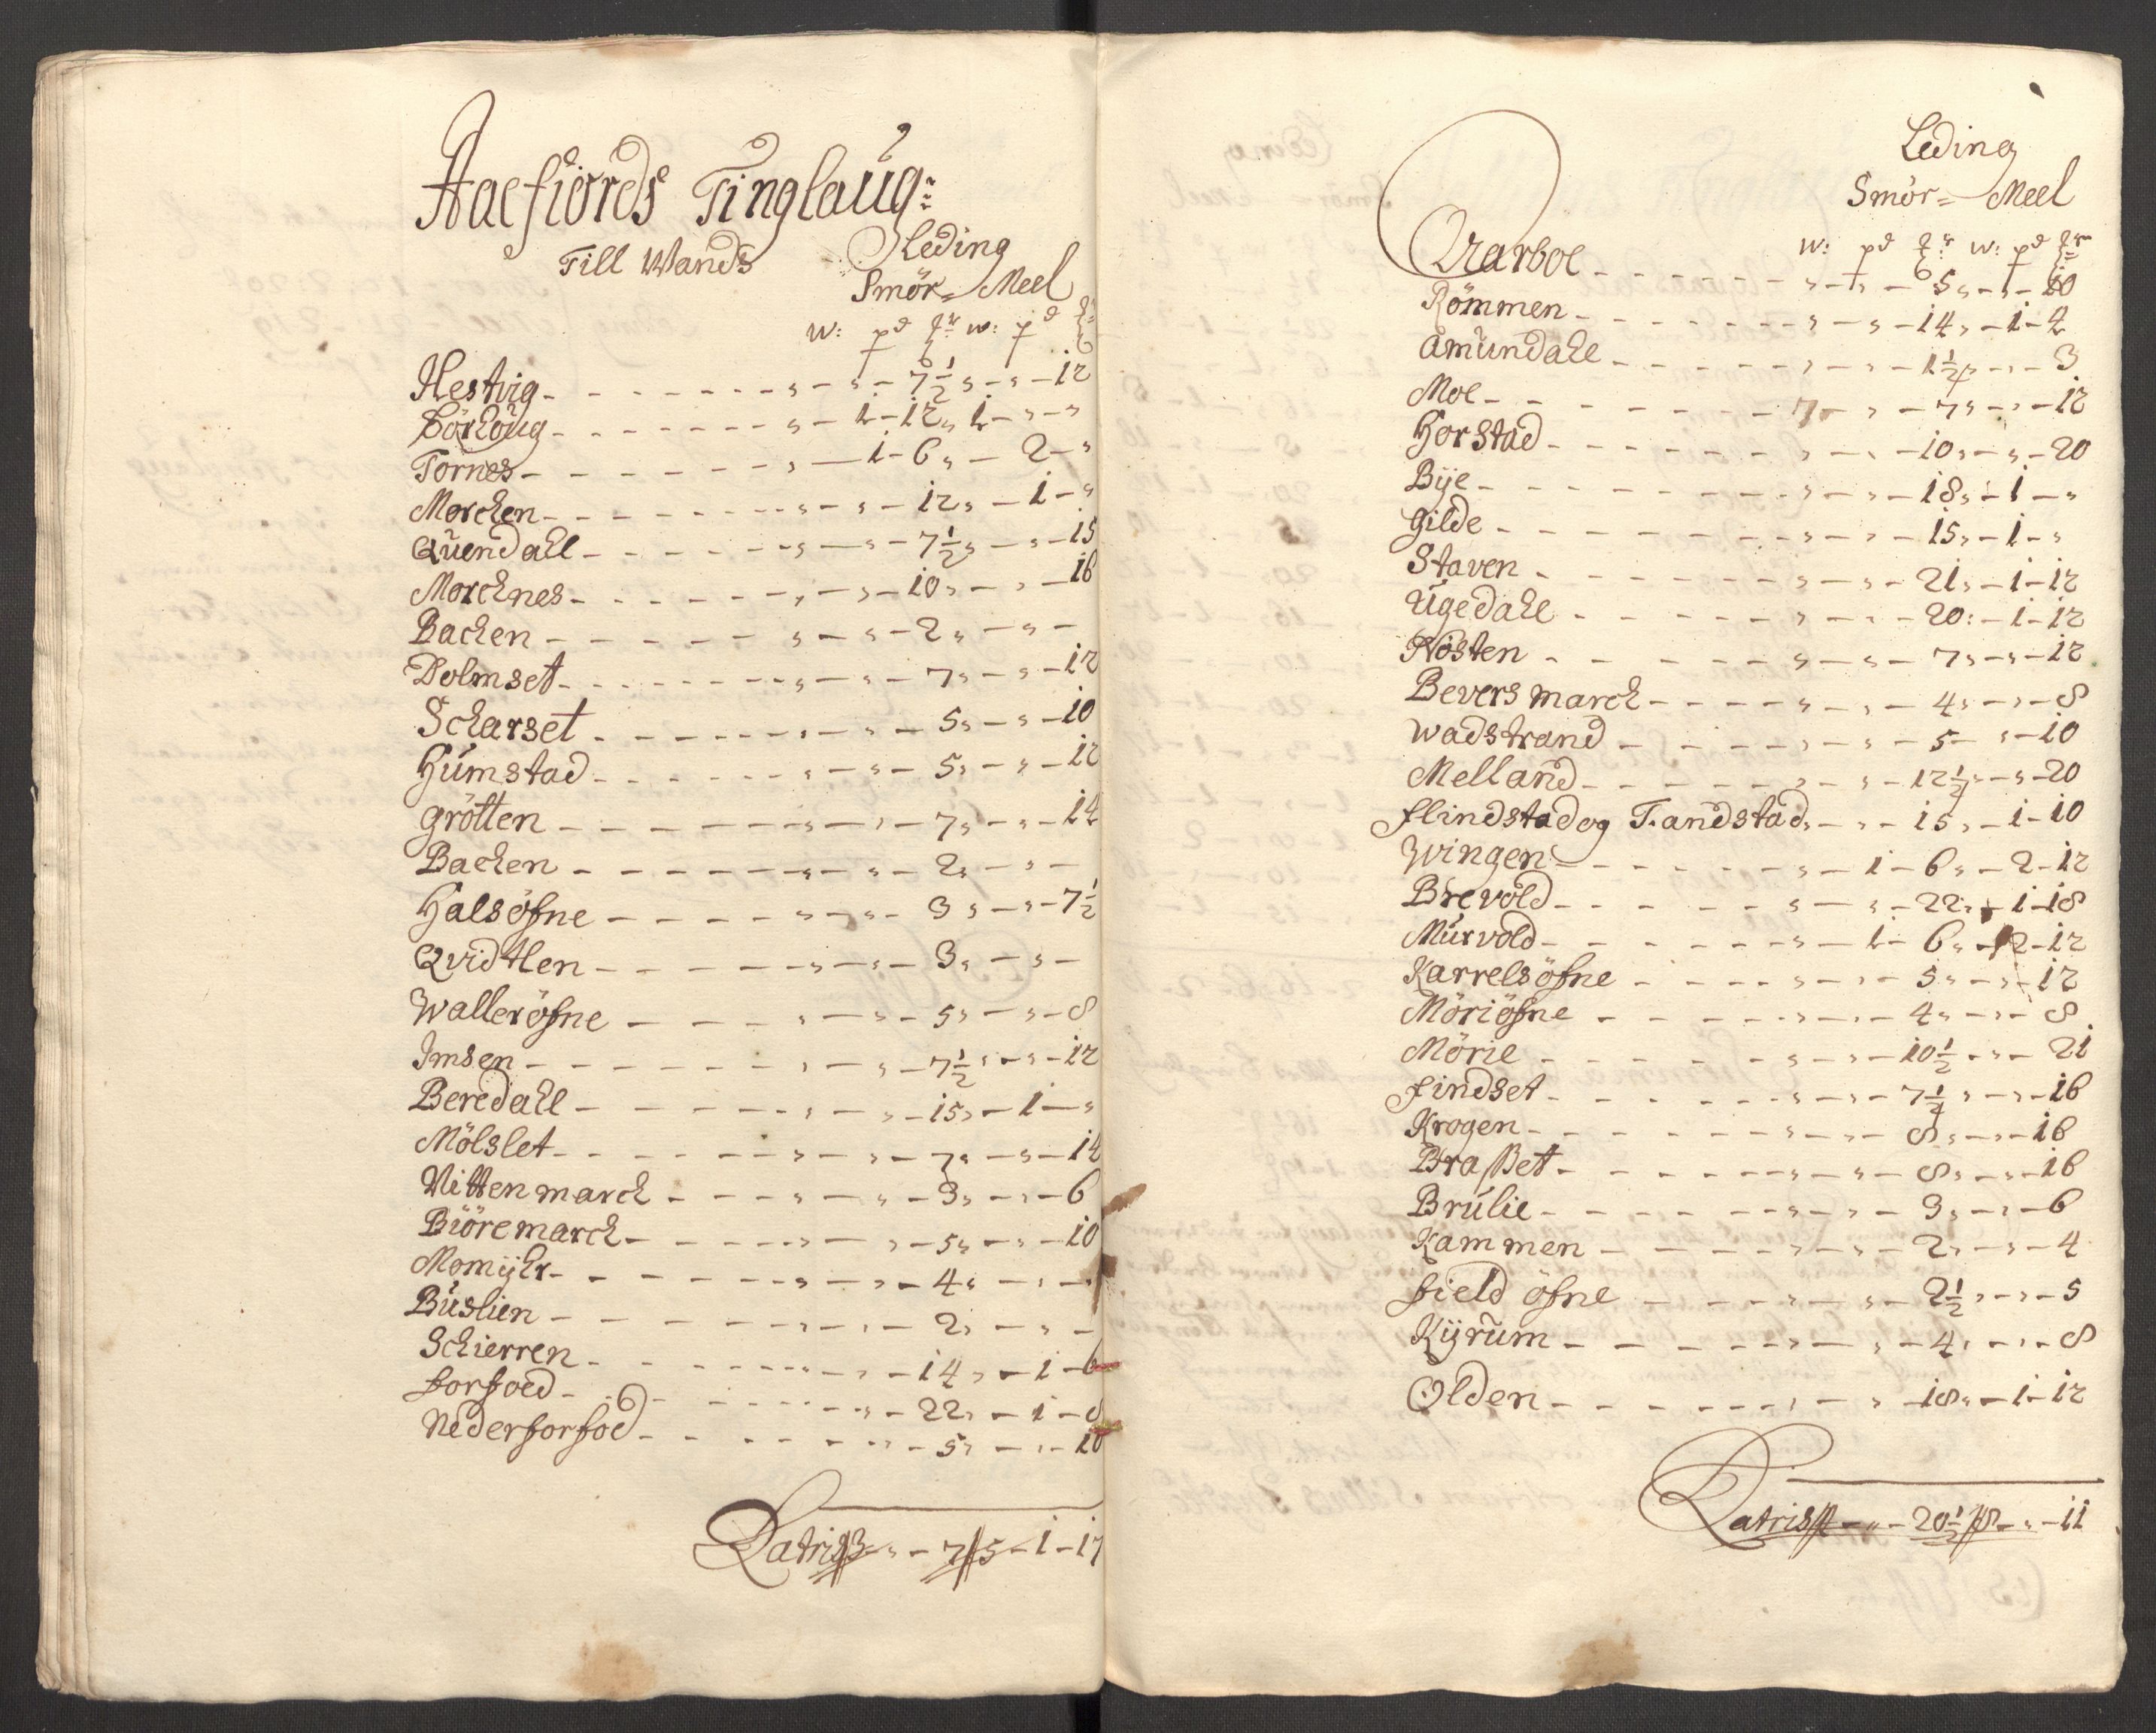 Aaefiords Tinglaug:
Till Wands Leding
Smör= Meel
W: pd W: pd
Hestvig - - - - - - - „ - „ - 7½ „ - „ - 12
Börhoug - - - - - - - „ - 1 - 12 „ 1 - „ - „
Tornes - - - - - - - „ - 1 - 6 „ - 2 - „
Morchen - - - - - - - „ - „ - 12 „ - 1 - „
Quendahl - - - - - - „ - „ - 7½ „ - „ - 15
Morchnes - - - - - - „ - „ - 10 „ - „ - 16
Bachen - - - - - - „ - „ - 2 „ - „ -
Dolmset - - - - - - - „ - „ - 7 „ - „ - 12
Scharset - - - - - - „ - „ - 5 „ - „ - 10
Humstad - - - - - - „ - „ - 5 „ - „ - 12
Grötten - - - - - - „ - „ - 7 „ - „ - 14
Bachen - - - - - - „ - „ - 2 „ - „ -
Halsöfne - - - - - „ - „ - 3 „ - „ - 7½
Qvidtlen - - - - - „ - „ - 3 „ - „ -
Walleröfne - - - - „ - „ - 5 „ - „ - 8
Imsen - - - - - - - „ - „ - 7½ „ - „ - 12
Beredahl - - - - - - „ - „ - 15 „ - 1 - „
Mölslet - - - - - - „ - „ - 7 „ - „ - 14
Nittenmarch - - - - „ - „ - 3 „ - „ - 6
Biöremarch - - - - - „ - „ - 5 „ - „ - 10
Momyhr - - - - - - „ - „ - 4 „ - „ -
Buslien - - - - - - „ - „ - 2 „ - „ -
Schierren - - - - - „ - „ - 14 „ - 1 - 6
forfoed - - - - - - „ - 22 „ - 1 - 8
Nederforfod - - - - - „ - 5 „ - „ - 10
Latriss - „ - 7 5 - 1 - 17
Leding
Smör= Meel
W: pd W: pd
Aarboe - - - - - - „ - „ - 5 „ - „ - 10
Römmen - - - - - - - „ - „ - 14 „ - 1 - 4
Amundahl - - - - - - „ - „ - 1½ „ - „ - 3
Moe - - - - - - - „ - „ - 7 „ - „ - 12
Horstad - - - - - - - „ - „ - 10 „ - „ - 20
Bye - - - - - - - - „ - „ - 18 „ - 1 - „
Gilde - - - - - - - „ - „ - 15 „ - 1 - „
Staven - - - - - - „ - „ - 21 „ - 1 - 12
Ugedahl - - - - - - „ - „ - 20 : - 1 - 12
Nösten - - - - - - „ - „ - 7 „ - „ - 12
Beversmarch - - - - „ - „ - 4 „ - „ - 8
Wadstrand - - - - - „ - „ - 5 - „ - 10
Melland - - - - - - „ - „ - 12½ „ - „ - 20
flindstad og Tandstad „ - „ - 15 „ - 1 - 10
Wingen - - - - - - „ - 1 - 6 „ - 2 - 12
Brevold - - - - - - „ - „ - 22 „ 1 - 18
Murvold - - - - - - „ - 1 - 6 „ - 2 - 12
Karrelsöfne - - - - „ - „ - 5 „ - „ - 12
Möriöfne - - - - - „ - „ - 4 „ - „ - 8
Mörie - - - - - - „ - „ - 10½ „ - „ - 21
findset - - - - - - „ - „ - 7½ „ - „ - 16
Krogen - - - - - - „ - „ - 8 „ - „ - 16
Braßet - - - - - - „ - „ - 8 „ - „ - 16
Brulie - - - - - - „ - „ - 3 „ - „ - 6
Kammen - - - - - „ - „ - 2 „ - „ - 4
field öfne - - - - „ - „ - 2½ „ - „ - 5
Kyrum - - - - - - „ - „ - 4 „ - „ - 8
Olden - - - - - - „ - „ - 18 „ - 1 - 12
Latriss - „ - 20½ 8 - „ - 11